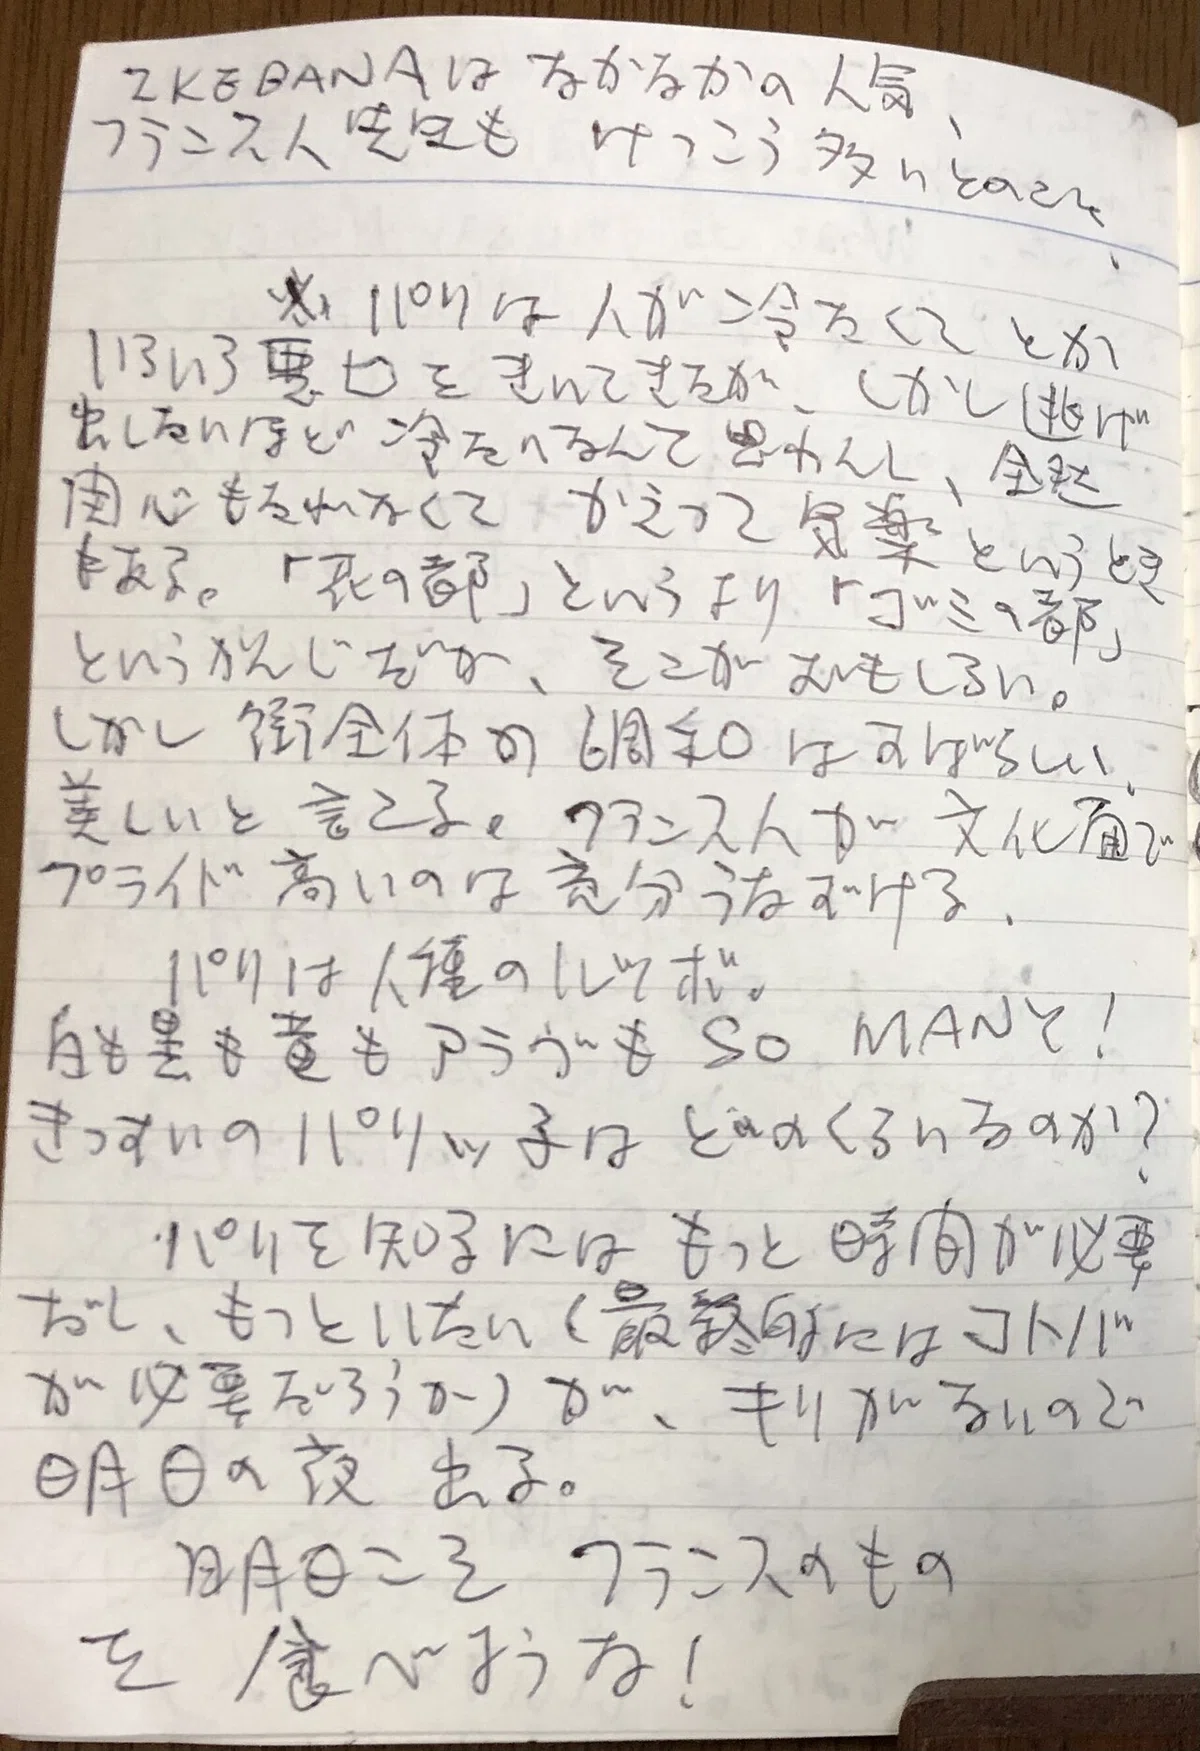 IKEBANAは なかなかの人気、
フランス人先生も けっこう多いとのこと、
パリは人が冷たくて とか
いろいろ悪口をきいてきたが、しかし逃げ
出したいほど 冷たいなんて思わんし、全然
用心もされなくて かえって気楽というとき
もある。「花の都」というより「ゴミの都」
というかんじだが、そこがおもしろい。
しかし 街全体の調和はすばらしい、
美しいと言える。フランス人が文化面で
プライド高いのは充分うなずける、
パリは人種のルツボ。
白も黒も黄もアラヴも SO MANY!
きっすいのパリッ子は どのくらいるのか?
パリを知るには もっと時間が必要
だし、もっといたい(最終的にはコトバ
が必要だろうか)が、きりがないので
明日の夜 出る。
明日こそ フランスのもの
を食べような!